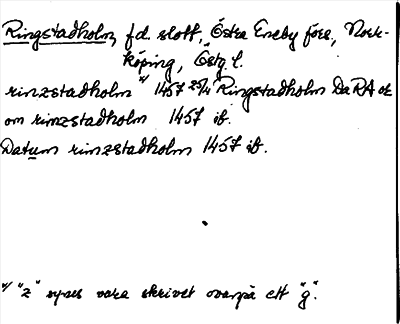 Ringstadholm, f.d. slott, Östra Eneby förs., Norr-
köping, Östg. l.
rinzstadholm *) 1457 25/4 Ringstadholm Da RA or
om rinzstadholm 1457 ib.
Datum rinzstadholm 1457 ib.
*) "z" synes vara skrivet ovanpå ett "g".